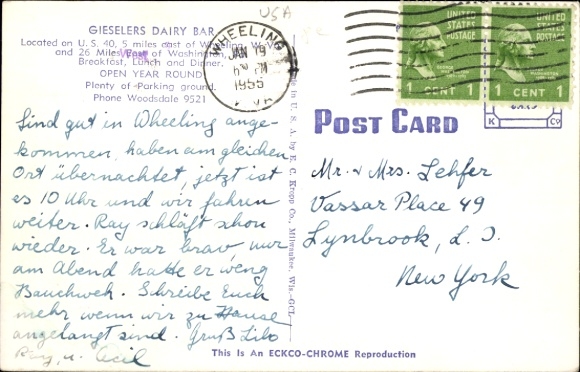 USA
GIESELERS DAIRY BAR
Located on U.S. 40, 5 miles east of Wheeling, W. Va.
and 26 Miles West of Washington,
Breakfast, Lunch and Dinner.
OPEN YEAR ROUND
Plenty of Parking ground.
Phone Woodsdale 9521
WHEELING
JAN 19
4 PM
1955
W. VA.
UNITED STATES POSTAGE
1 CENT 1
UNITED STATES POSTAGE
1 CENT 1
K Co
POST CARD
Made in U. S. A. by E. C. Kropp Co., Milwaukee, Wis.-GCL
Sind gut in Wheeling ange-
kommen, haben am gleichen
Ort übernachtet, jetzt ist
es 10 Uhr und wir fahren
weiter. Ray schläft schon
wieder. Er war brav, nur
am Abend hatte er weng
Bauchweh. Schreibe Euch
mehr wenn wir zu Hause
angelangt sind. Gruß Lilo
Ray, u. Cecil
Mr. & Mrs. Lehfer
Vassar Place 49
Lynbrook, L. I.
New York
This Is An ECKCO-CHROME Reproduction